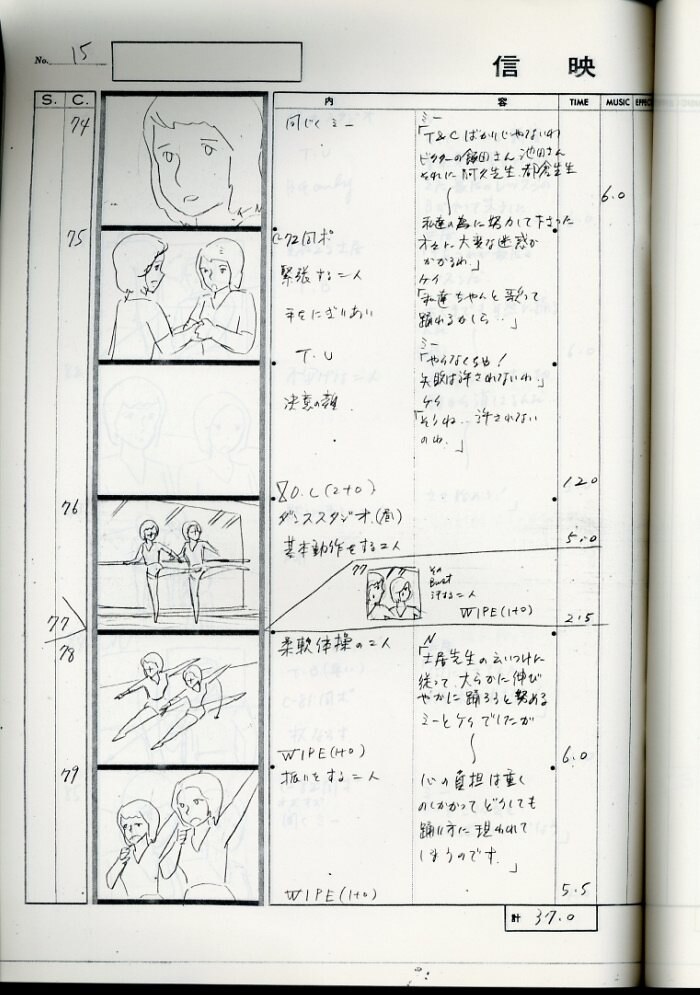 No. 15
信 映
S. C. 内 容 TIME MUSIC EFFEC
74
同じくミー
ミー
「T&Cばかりじゃないわ
ビクターの飯田さん 池田さん
それに阿久先生、都倉先生
6.0
75
C-72同ポ
緊張する二人
手をにぎりあい
T.U
決意の顔.
私達の為に努力して下さった
大変な迷惑が
かかるわ。」
ケイ
「私達ちゃんと歌って
踊れるかしら‥」
ミー
「やらなくちゃ!
失敗は許されないわ」
ケイ
「そうね‥許されない
のね。」
O.L(2+0)
12.0
76
ダンススタジオ.(昼)
基本動作をする二人
5.0
77
77
その
Bust
汗する二人
WIPE(1+0)
2.5
78
柔軟体操の二人
N
「土居先生の云いつけに
従って、大らかに伸び
やかに踊ろうと努める
ミーとケイでしたが
WIPE(1+0)
6.0
79
振りをする二人
心の負担は重く
のしかかって どうしても
踊り方に現われて
しまうのです。」
WIPE(1+0)
5.5
計 37.0